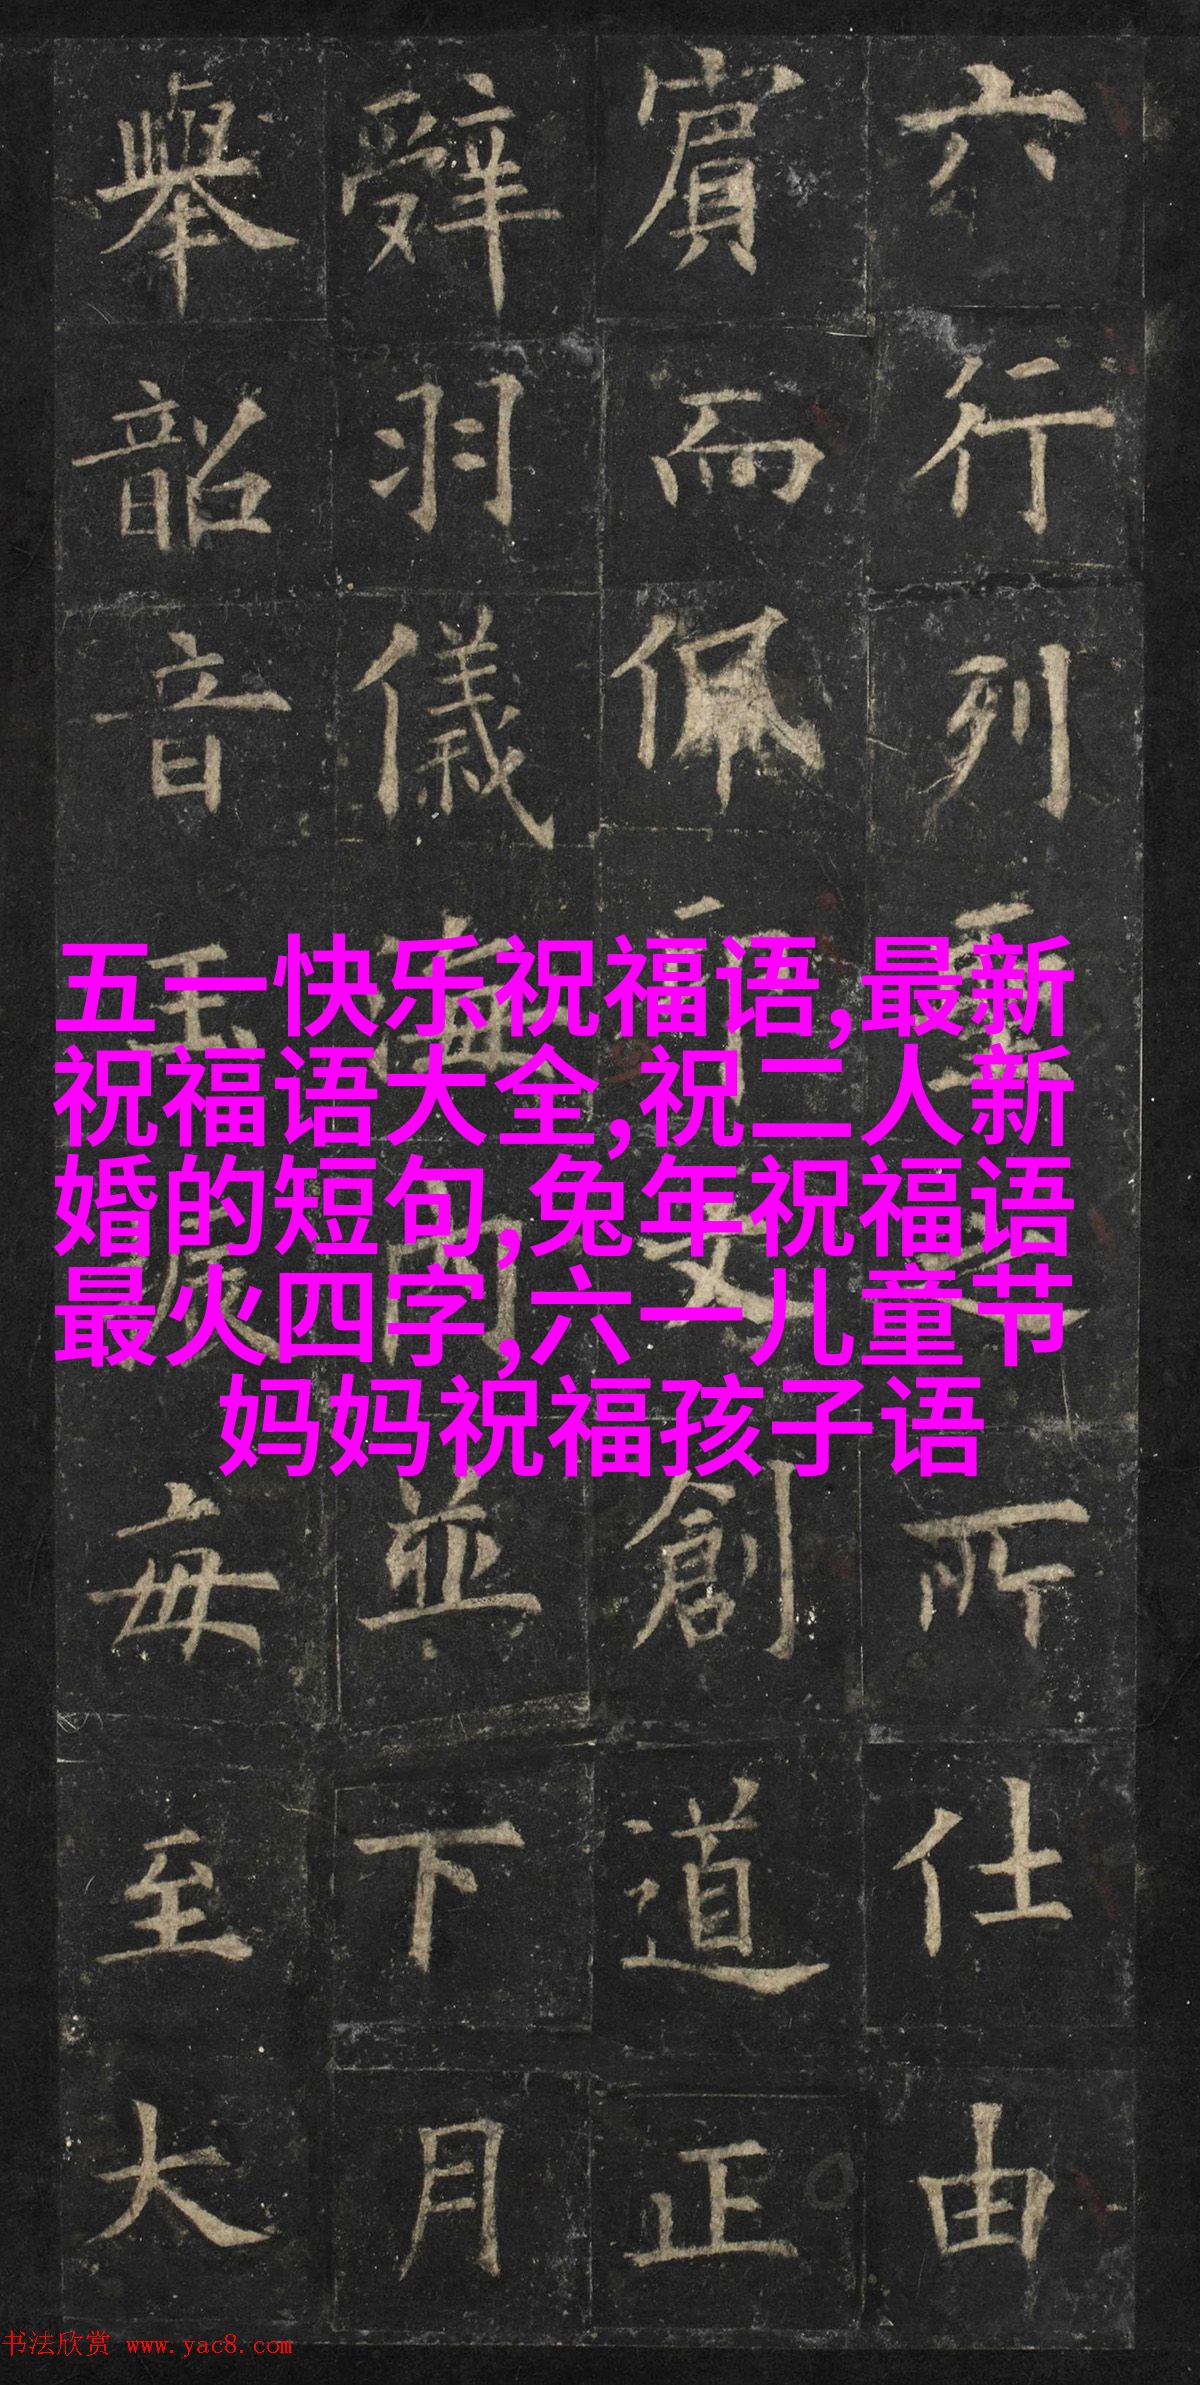 六行列所仕由
賔而佩文創道正
辤羽儀内並下月
舉韶音玉振毎至大
五一快乐祝福语,最新
祝福语大全,祝二人新
婚的短句,兔年祝福语
最火四字,六一儿童节
妈妈祝福孩子语
书法欣赏 www.yac8.com